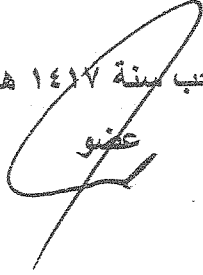 سنة ١٤١٧ هـ
عضو